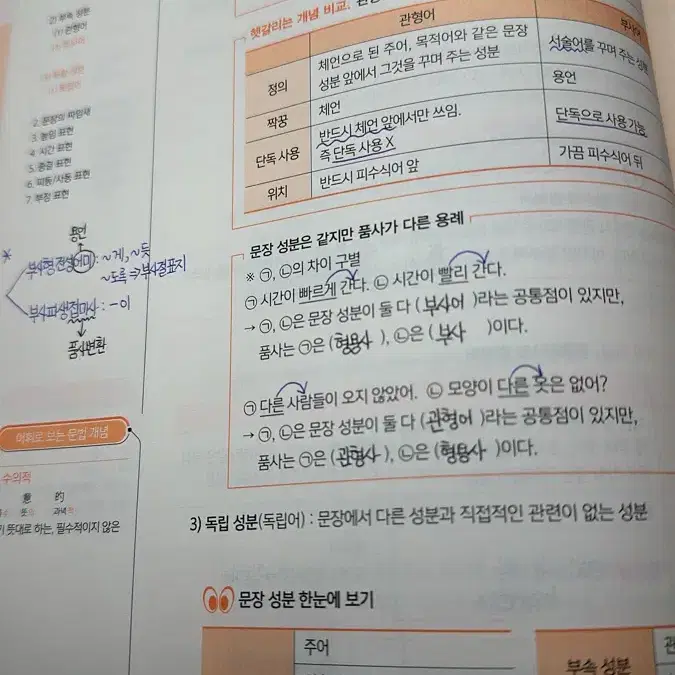 2) 부속 성분
(1) 관형어
2. 문장의 짜임새
3. 높임 표현
4. 시간 표현
5. 종결 표현
6. 피동/사동 표현
7. 부정 표현
용언
* 부사형 전성어미 : ~게, ~듯
~도록 ⇒ 부사절 표지
부사 파생접미사 : -이
품사변환
어휘로 보는 문법 개념
수의적
意 的
뜻대로 하는, 필수적이지 않은
헷갈리는 개념 비교.
관형어 부사어
정의 체언으로 된 주어, 목적어와 같은 문장 성분 앞에서 그것을 꾸며 주는 성분 서술어를 꾸며 주는 성분
짝꿍 체언 용언
단독 사용 반드시 체언 앞에서만 쓰임. 즉 단독 사용 X 단독으로 사용 가능
위치 반드시 피수식어 앞 가끔 피수식어 뒤
문장 성분은 같지만 품사가 다른 용례
※ ㉠, ㉡의 차이 구별
㉠ 시간이 빠르게 간다. ㉡ 시간이 빨리 간다.
→ ㉠, ㉡은 문장 성분이 둘 다 (부사어)라는 공통점이 있지만,
품사는 ㉠은 (형용사), ㉡은 (부사)이다.
㉠ 다른 사람들이 오지 않았어. ㉡ 모양이 다른 옷은 없어?
→ ㉠, ㉡은 문장 성분이 둘 다 (관형어)라는 공통점이 있지만,
품사는 ㉠은 (관형사), ㉡은 (형용사)이다.
3) 독립 성분(독립어) : 문장에서 다른 성분과 직접적인 관련이 없는 성분
문장 성분 한눈에 보기
주어
부속 성분